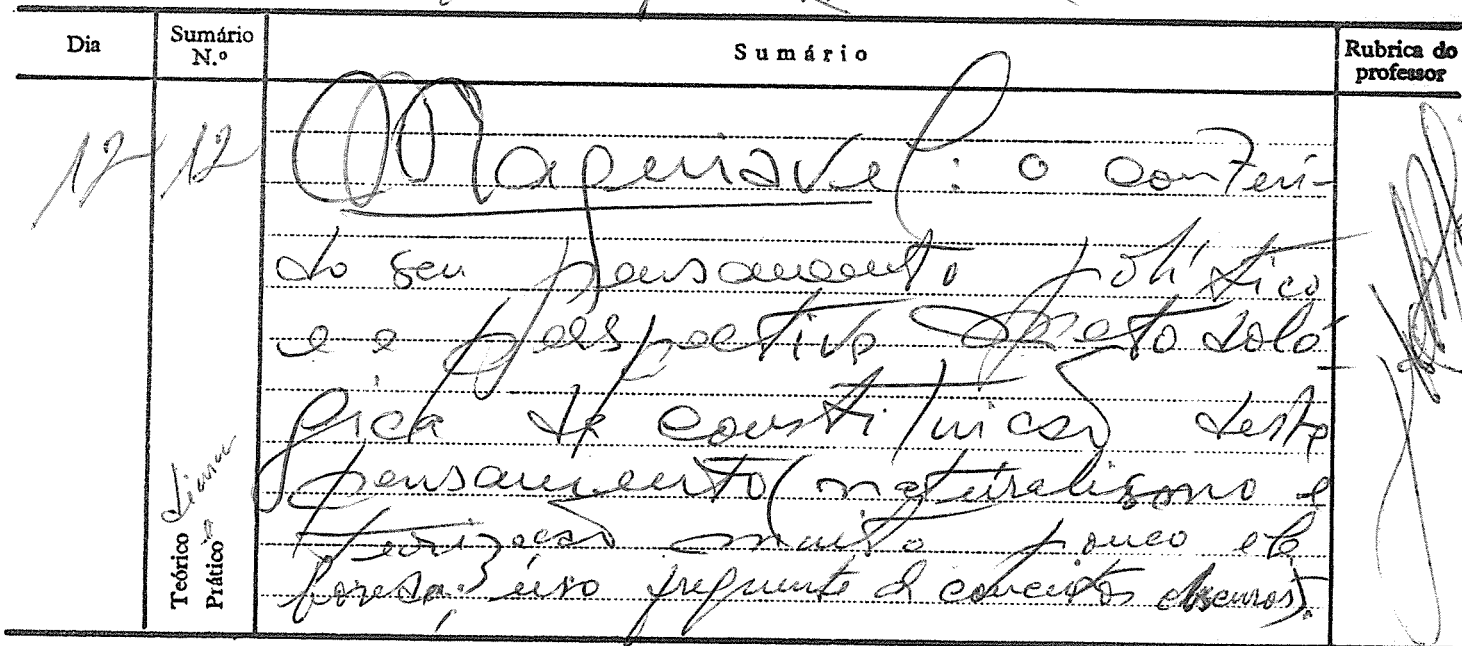 Dia Sumário N.º Sumário Rubrica do professor
12 12 Maquiavel: o conteú-
do seu pensamento político
e a perspectiva metodoló-
gica de constituição deste
pensamento (naturalismo e
teorização muito pouco ela
borada; uso frequente de conceitos obscuros).
Teórico
Prático